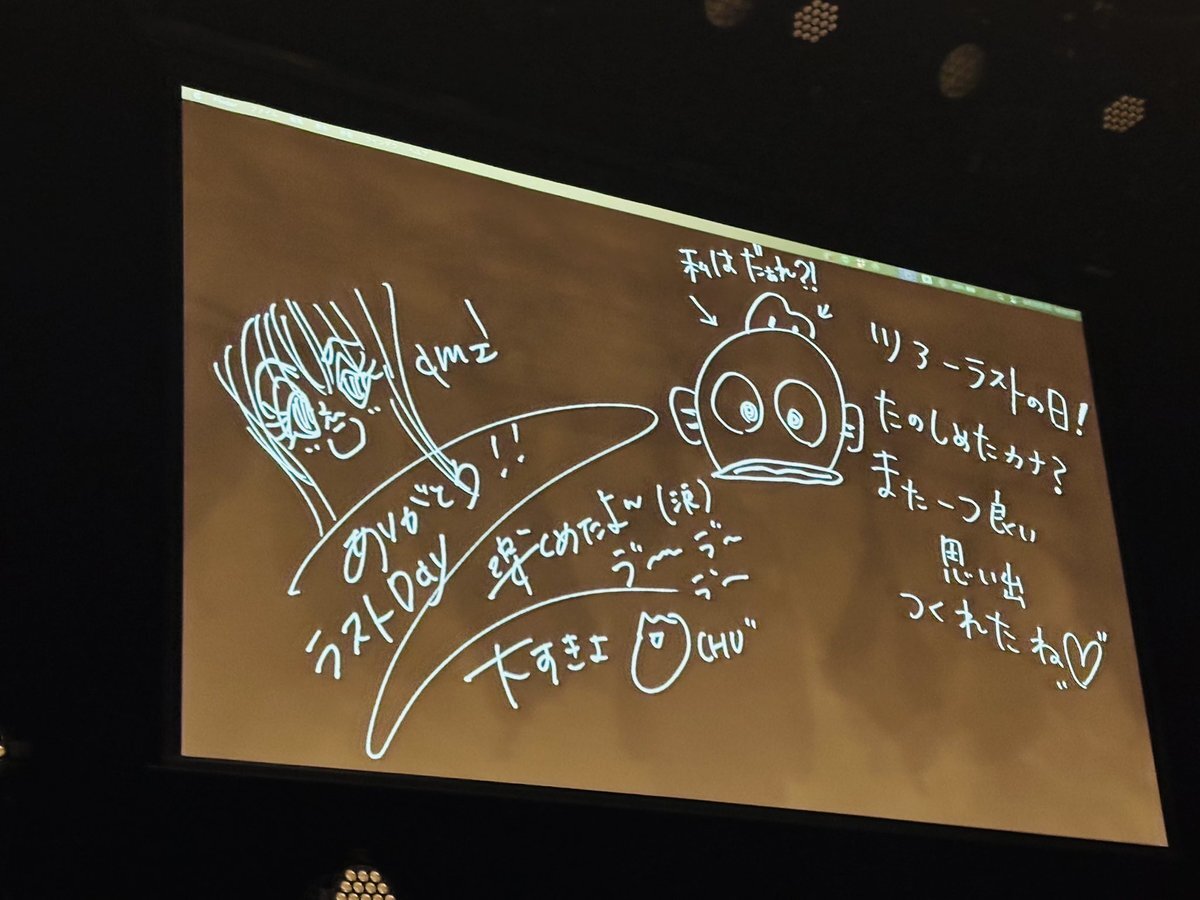 AMI
ありがとう!!
ラストDay
楽しめたよ〜(涙)
ラ〜ラ〜
ラ〜
大すきよ
CHU
私はだぁれ?!
ツアーラストの日!
たのしめたカナ?
また一つ良い
思い出
つくれたね♡